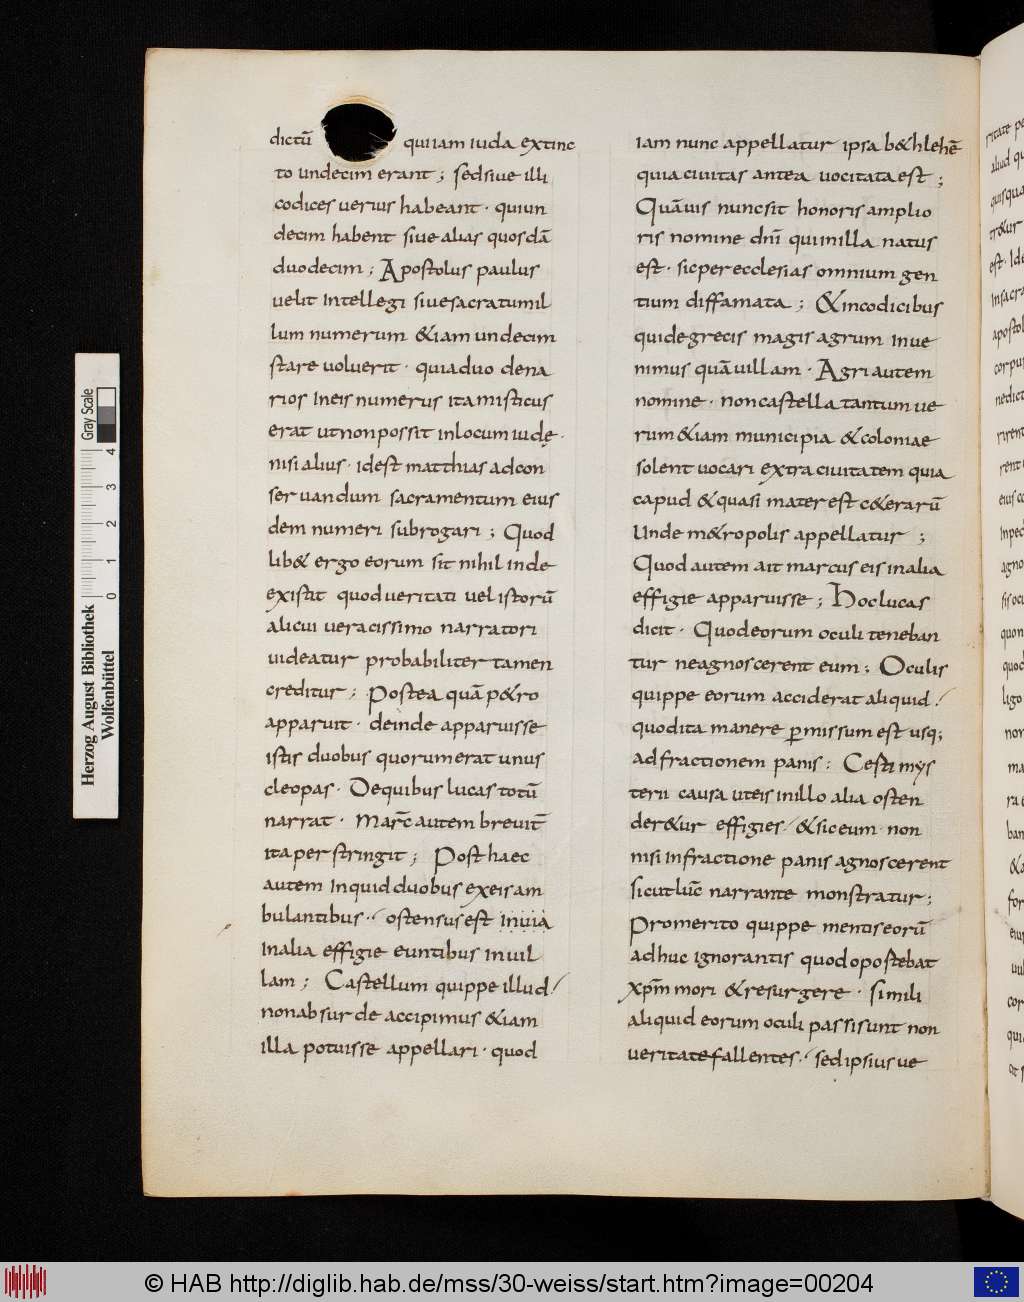 dictū quiiam iuda extinc
to undecim erant ; sedsiue illi
codices uerius habeant · quiun
decim habent siue alias quosdā
duodecim ; Apostolus paulus
uelit intellegi siuesacratumil
lum numerum &iam undecim
stare uoluerit · quiaduo dena
rios ineis numerus itamisticus
erat utnonpossit inlocum iudę ·
nisi alius · idest matthias adcon
seruandum sacramentum eius
dem numeri subrogari ; Quod
lib& ergo eorum sit nihil inde
existit quodueritati uel istorū
alicui ueracissimo narratori
uideatur probabiliter tamen
creditur ; Postea quā p&ro
apparuit · deinde apparuisse
istis duobus quorumerat unus
cleopas · Dequibus lucas totū
narrat · Marc̄ autem breuit̄
itaperstringit ; Post haec
autem inquid duobus exeis am
bulantibus · ostensusest inuia
inalia effigie euntibus inuil
lam ; Castellum quippe illud
nonabsurde accipimus &iam
illa potuisse appellari · quod
iam nunc appellatur ipsa b&hlehē
quia ciuitas antea uocitataest ;
Quāuis nuncsit honoris amplio
ris nomine dn̄i quiinilla natus
est · sicperecclesias omnium gen
tium diffamata ; &incodicibus
quidegrecis magis agrum inue
nimus quāuillam · Agri autem
nomine · noncastella tantum ue
rum &iam municipia &coloniae
solent uocari extra ciuitatem quia
capud &quasi mater est c&erarū
Unde m&ropolis appellatur ;
Quod autem ait marcus eis inalia
effigie apparuisse ; Hoclucas
dicit · Quodeorum oculi teneban
tur neagnoscerent eum ; Oculis
quippe eorum acciderat aliquid
quodita manere ꝑmissum est usq;
adfractionem panis ; Certi mys
terii causa uteis inillo alia osten
der&ur effigies · &siceum non
nisi infractione panis agnoscerent
sicutluc̄ narrante monstratur ;
Promerito quippe mentiseorū
adhuc ignorantis quodopostebat
xpm̄ mori &resurgere · simili
aliquid eorum oculi passisunt non
ueritatefallentes · sedipsius ue
Herzog August Bibliothek
Wolfenbüttel
Gray Scale
0 1 2 3 4
© HAB http://diglib.hab.de/mss/30-weiss/start.htm?image=00204